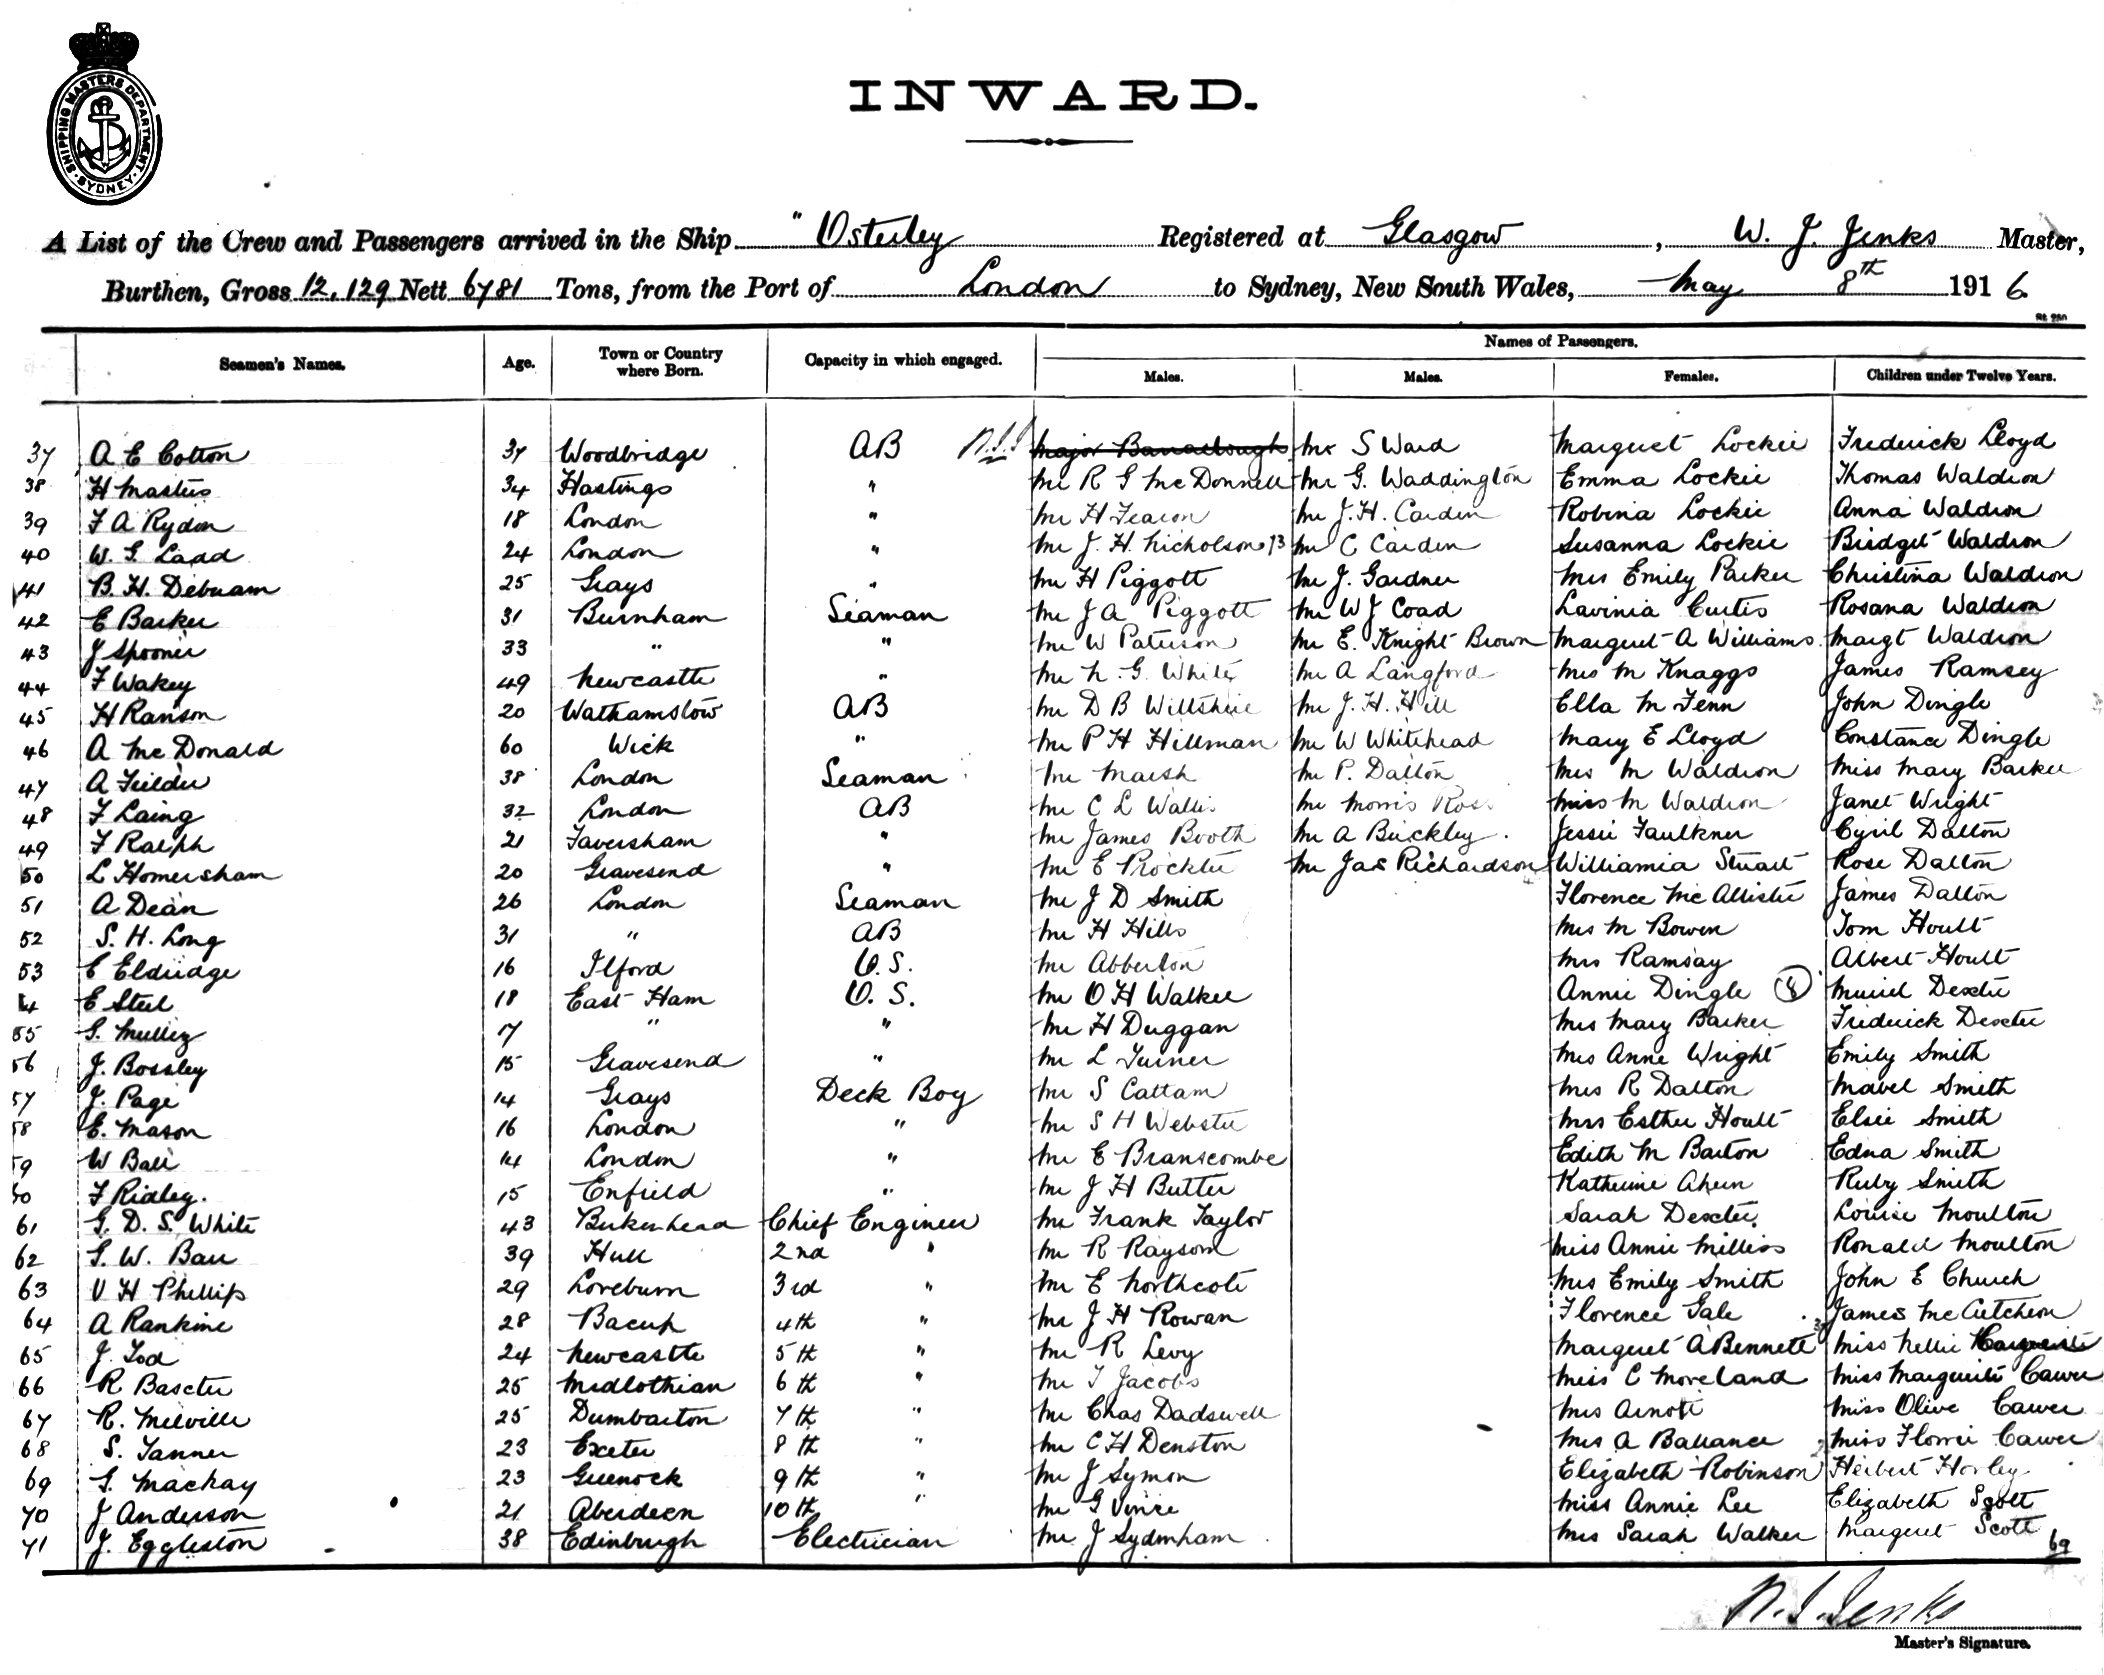 SHIPPING MASTERS DEPARTMENT. SYDNEY.
INWARD.
A List of the Crew and Passengers arrived in the Ship "Osterley Registered at Glasgow, W. J. Jenks Master,
Burthen, Gross 12,129 Nett 6781 Tons, from the Port of London to Sydney, New South Wales, May 8th 1916.
Names of Passengers.
Seamen's Names. Age. Town or Country where Born. Capacity in which engaged. Males. Males. Females. Children under Twelve Years.
37 A E Cotton 37 Woodbridge AB Major Mr S Ward Margaret Lockie Frederick Lloyd
38 H Masters 34 Hastings " Mr R G McDonnell Mr G. Waddington Emma Lockie Thomas Waldron
39 F A Rydon 18 London " Mr H Fearon Mr J. H. Carden Robina Lockie Anna Waldron
40 W. G. Ladd 24 London " Mr J. H. Nicholson 13 Mr C Carden Susanna Lockie Bridget Waldron
41 B. H. Debnam 25 Grays " Mr H Piggott Mr J. Gardner Mrs Emily Parker Christina Waldron
42 E Barker 31 Burnham Seaman Mr J A Piggott Mr W J Coad Lavinia Curtis Rosana Waldron
43 J Spooner 33 " " Mr W Paterson Mr E. Knight Brown Margaret A Williams Margt Waldron
44 F Wakey 49 Newcastle " Mr N. G. White Mr A Langford Mrs M Knaggs James Ramsey
45 H Ranson 20 Wathamstow AB Mr D B Willshire Mr J. H. Hill Ella M Fenn John Dingle
46 A McDonald 60 Wick " Mr P H Hillman Mr W Whitehead Mary E Lloyd Constance Dingle
47 A Fielder 38 London Seaman Mr Marsh Mr P. Dalton Mrs M Waldron Miss Mary Barker
48 F Laing 32 London AB Mr C L Wallis Mr Morris Ross Miss M Waldron Janet Wright
49 F Ralph 21 Faversham " Mr James Booth Mr A Buckley. Jessie Faulkner Cyril Dalton
50 L Homersham 20 Gravesend " Mr E Prockter Mr Jas Richardson Williamia Stuart Rose Dalton
51 A Dean 26 London Seaman Mr J D Smith Florence McAllister James Dalton
52 S. H. Long 31 " AB Mr H Hills Mrs M Bowen Tom Hoult
53 E Eldridge 16 Ilford O.S. Mr Abberton Mrs Ramsay Albert Hoult
4 E Steel 18 East Ham O.S. Mr O H Walker Annie Dingle Muriel Dexter
55 G. 17 " " Mr H Duggan Mrs Mary Barker Frederick Dexter
56 J. Bossley 15 Gravesend " Mr L Turner Mrs Anne Wright Emily Smith
57 J. Page 14 Grays Deck Boy Mr S Cattam Mrs R Dalton Mavel Smith
58 E. Mason 16 London " Mr S H Webster Mrs Esther Hoult Elsie Smith
59 W Ball 14 London " Mr E Branscombe Edith M Barton Edna Smith
60 F Ridley. 15 Enfield " Mr J H Butter Katherine Ahern Ruby Smith
61 G. D. S. White 43 Birkenhead Chief Engineer Mr Frank Taylor Sarah Dexter Louise Moulton
62 G. W. Barr 39 Hull 2nd " Mr R Raysom Miss Annie Milliss Ronald Moulton
63 V H Phillips 29 Loreburn 3rd " Mr E Northcote Mrs Emily Smith John E Church
64 A Rankine 28 Bacup 4th " Mr J H Rowan Florence Gale James McCutcheon
65 J. Tod 24 Newcastle 5th " Mr R Levy Margaret A Bennett Miss Nellie
66 R Baxter 25 Midlothian 6th " Mr T Jacobs Miss C Moreland Miss Marguerite Cawer
67 R. Melville 25 Dumbarton 7th " Mr Chas Dadswell Mrs Arnott Miss Olive Cawer
68 S. Tanner 23 Exeter 8th " Mr C H Denston Mrs A Ballance Miss Florrie Cawer
69 G. Mackay 23 Greenock 9th " Mr J Symon Elizabeth Robinson Herbert Horley
70 J Anderson 21 Aberdeen 10th " Mr G Vince Miss Annie Lee Elizabeth Scott
71 J. Eggleston 38 Edinburgh Electrician Mr J Sydenham Mrs Sarah Walker Margaret Scott
69
W. J. Jenks
Master's Signature.